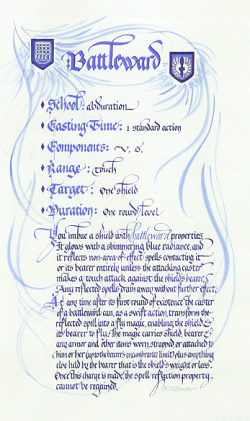 Battleward
School: abduration
Casting Time: 1 standard action
Components: V, S
Range: touch
Target: One shield
Duration: One round/level
You imbue a shield with battleward properties.
It glows with a shimmering blue radiance, and
it reflects non-area-of-effect spells contacting it
or its bearer entirely unless the attacking caster
makes a touch attack against the shield's bearer.
Any reflected spells drain away without further effect.
At any time after its first round of existence the caster
of a battleward can, as a swift action, transform the
reflected spell into a fly magic, enabling the shield
bearer to fly. The magic carries shield, bearer
any armor and other items worn, strapped or attached to
him or her (up to the bearer's encumbrance limit) plus anything
else held by the bearer that is the shield's weight or less.
Once this change is made, the spell reflection property
cannot be regained.